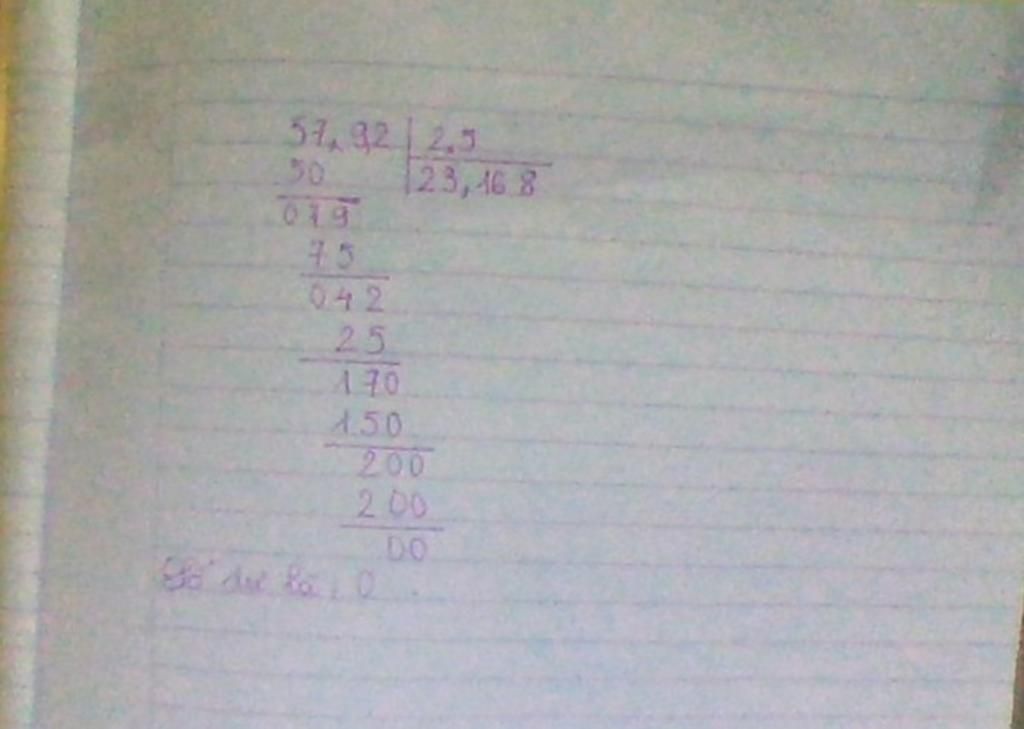 57,9,2 2.5
50 23,168
079
75
042
25
170
150
200
200
00
Số dư là : 0